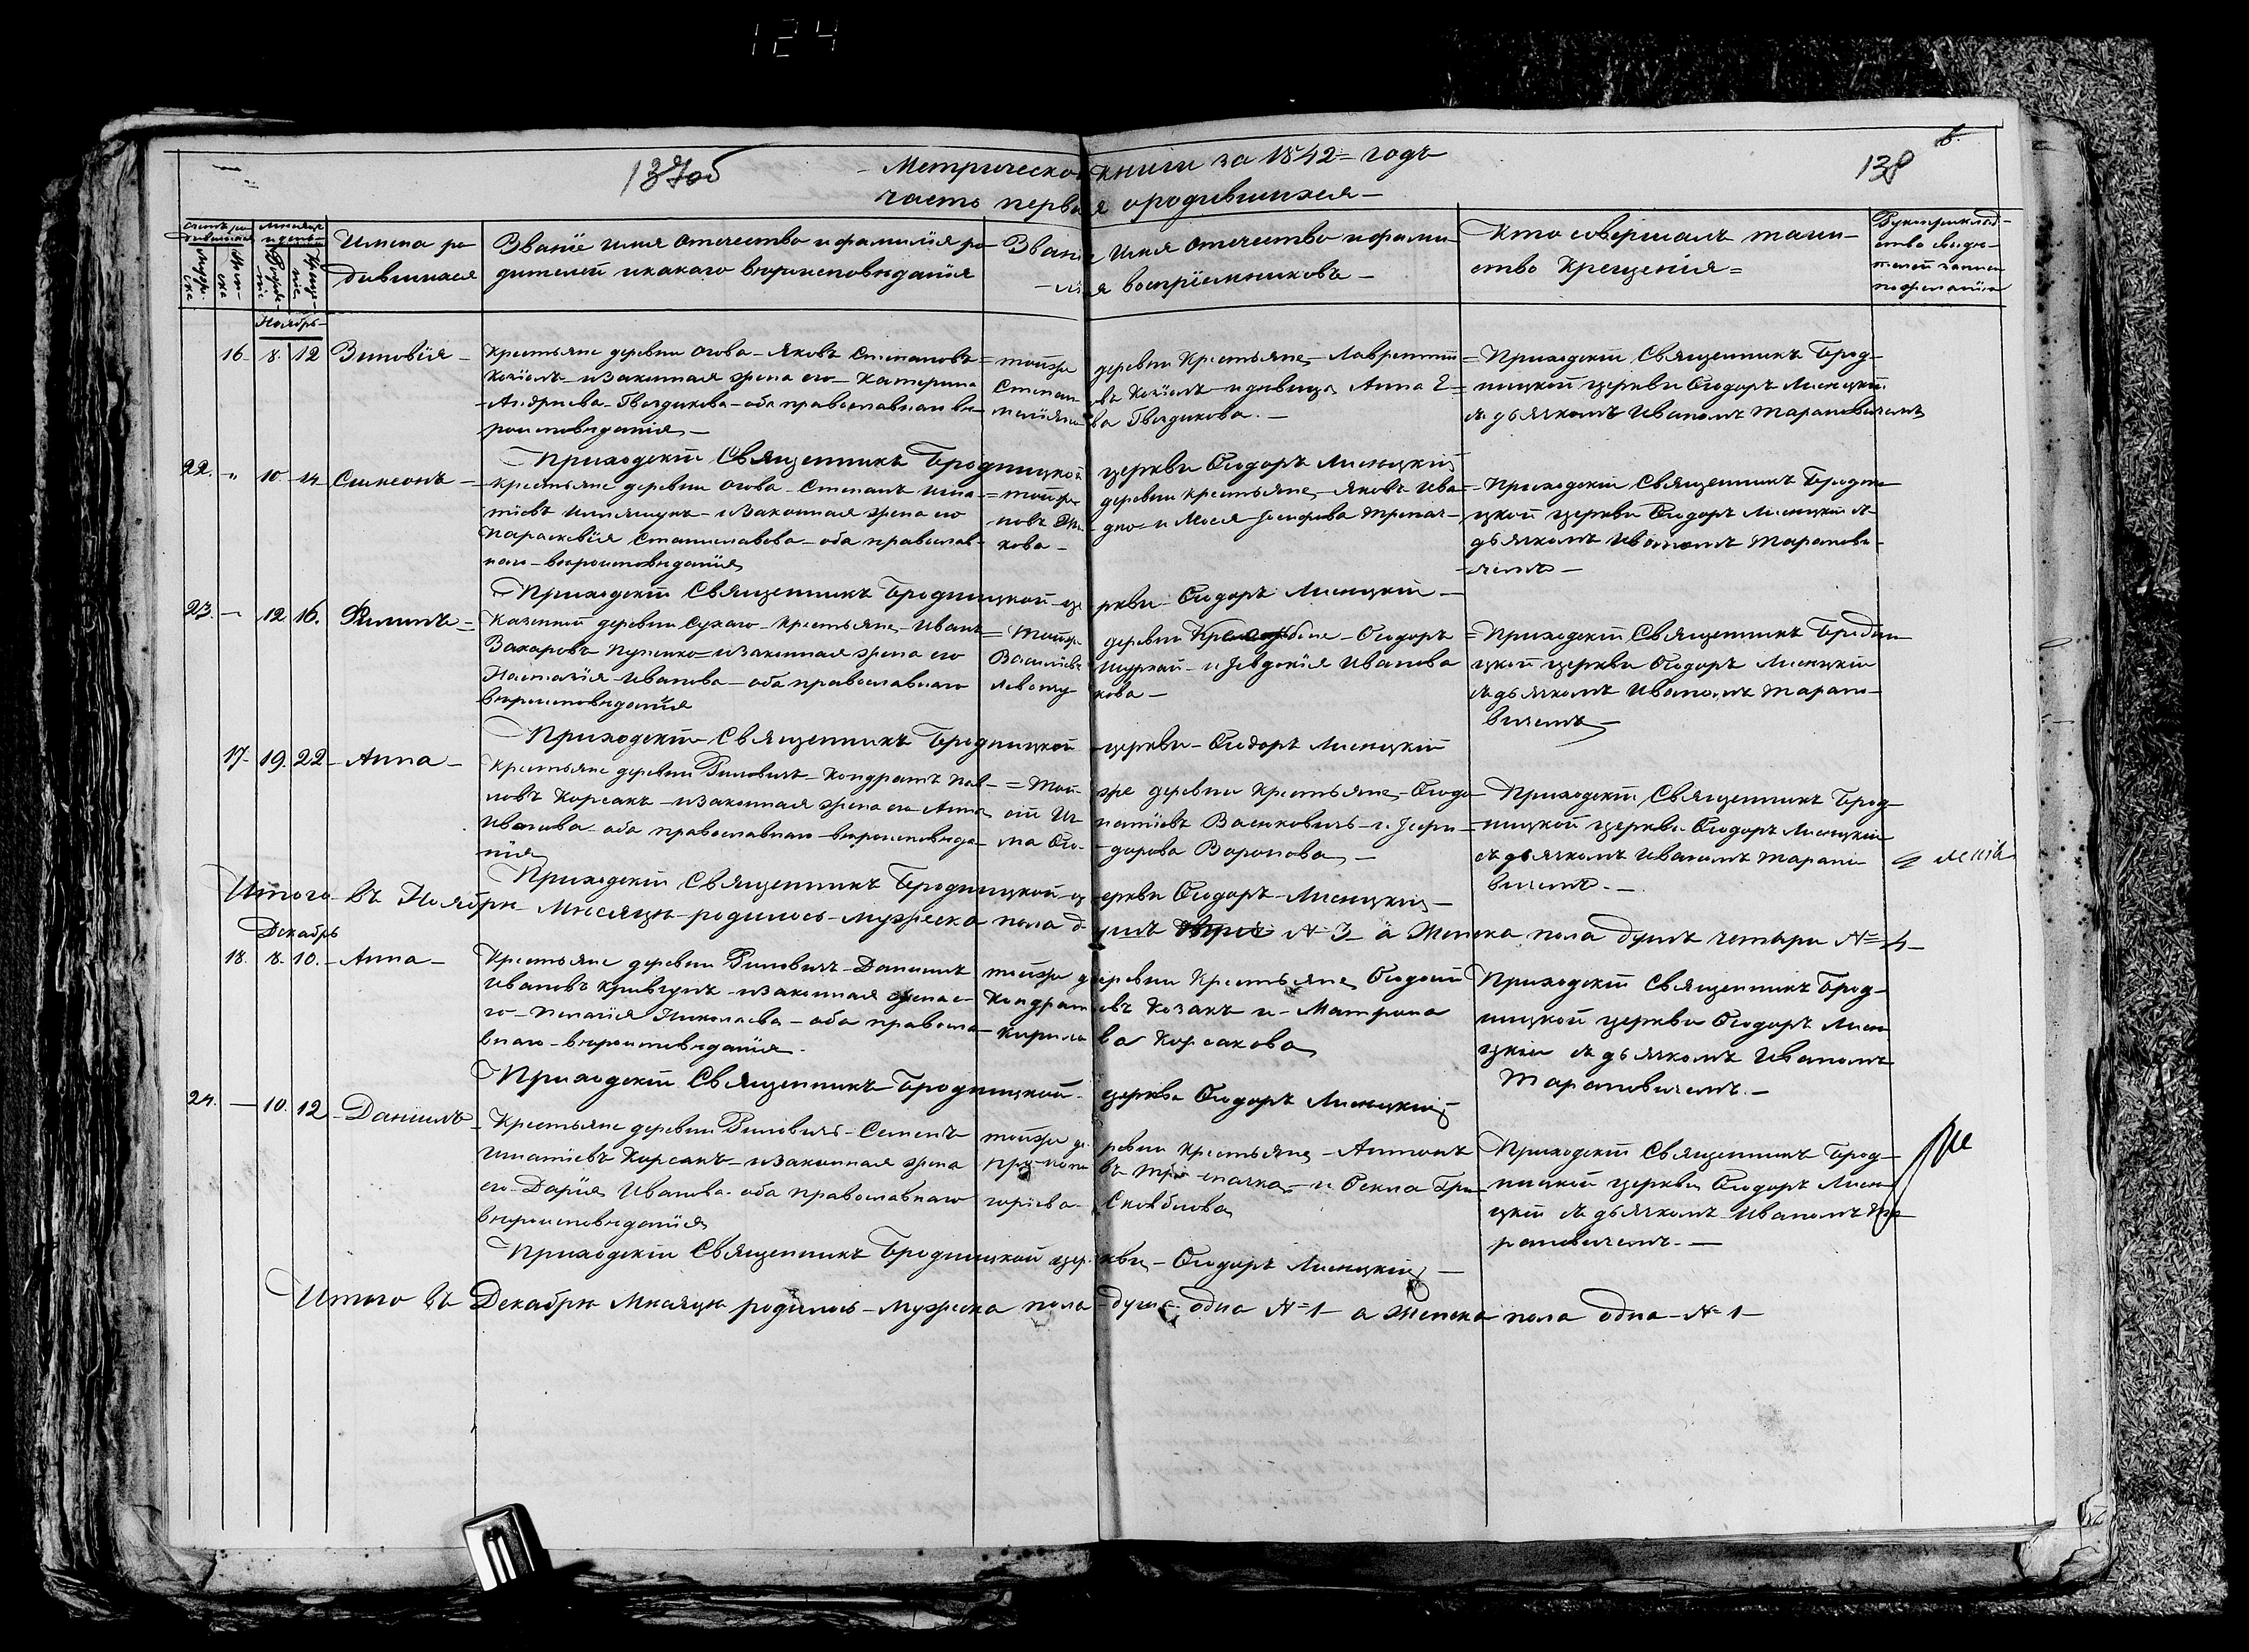 124
137об
Метрической книги за 1842 годъ
138
часть первая о родившихся
Имена ро-
дившихся
Званіе имя отечество и фамилія ро-
дителей и какаго вѣроисповѣданія
Званіе Имя отечество и фами-
лія воспріемниковъ
Кто совершалъ таин-
ство Крещенія
Рукоприклад-
ство свидѣ-
телей записи
по желанію
Ноябрь
16 8 12 Зиновія
Крестьяне деревни Огова Яковъ Степановъ
изаконная жена его Катерина
Андреева Гвоздикова оба православнаго вѣ-
роисповѣданія
тойже деревни Крестьяне Лаврентій
и девица Анна
ва Гвоздикова
Приходскій Священникъ Брод-
ницкой церкви Ѳеодоръ Лисицкій
съ дьячкомъ Иваномъ Тарановичемъ
Приходскій Священникъ Бродницкой церкви Ѳеодоръ Лисицкій
22. 10 14 Симеонъ
крестьяне деревни Огова Степанъ Игна-
тіевъ изаконная жена его
Параскевія Станиславова оба православ-
наго вѣроисповѣданія
тойже деревни крестьяне Яковъ Ива-
новъ
кова
Приходскій Священникъ Бродни-
цкой церкви Ѳеодоръ Лисицкій съ
дьячкомъ Иваномъ Таранови-
чемъ
Приходскій Священникъ Бродницкой церкви Ѳеодоръ Лисицкій
23. 12 16. Филипъ
Казенной деревни Сухаго Крестьяне Иванъ
Захаровъ изаконная жена его
Настасія Иванова оба православнаго
вѣроисповѣданія
Тойже деревни Ѳеодоръ
Василіевъ Шуркай и Іевдокія Иванова
Приходскій Священникъ Бродни-
цкой церкви Ѳеодоръ Лисицкій
съ дьячкомъ Иваномъ Тарано-
вичемъ
Приходскій Священникъ Бродницкой церкви Ѳеодоръ Лисицкій
17 19. 22 Анна
Крестьяне деревни Риловичъ Кондратъ Пав-
ловъ Корсакъ изаконная жена его Анна
Иванова оба православнаго вѣроисповѣда-
нія
Той-же деревни Крестьяне Ѳеодо-
натіевъ Васюковичъ и
дорова Воронова
Приходскій Священникъ Брод-
ницкой церкви Ѳеодоръ Лисицкій
съ дьячкомъ Иваномъ Тарано-
вичемъ
Приходскій Священникъ Бродницкой церкви Ѳеодоръ Лисицкій
Итого въ Ноябрѣ Мѣсяцѣ родилось мужеска пола душъ № 3 а Женска пола душъ четыри № 4
Декабрь
18. 8 10. Анна
Крестьяне деревни Риловичъ Даніилъ
Ивановъ Кривгунъ изаконная жена е-
го Пелагія Николаева оба правосла-
внаго вѣроисповѣданія
тойже деревни Крестьяне Ѳеодосій
Кондратіевъ Козакъ и Матрона
Кирилова Корсакова
Приходскій Священникъ Брод-
ницкой церкви Ѳеодоръ Лиси-
цкій съ дьячкомъ Иваномъ
Тарановичемъ
Приходскій Священникъ Бродницкой церкви Ѳеодоръ Лисицкій
24. 10. 12 Даніилъ
Крестьяне деревни Риловичъ Семенъ
Игнатіевъ Корсакъ изаконная жена
его Дарія Иванова оба православнаго
вѣроисповѣданія
тойже деревни Крестьяне Антонъ
и Ѳекла Гри-
горіева
Приходскій Священникъ Брод-
ницкой церкви Ѳеодоръ Лиси-
цкій съ дьячкомъ Иваномъ Та-
рановичемъ
Приходскій Священникъ Бродницкой церкви Ѳеодоръ Лисицкій
Итого въ Декабрѣ Мѣсяцѣ родилось мужеска пола душа одна № 1 а Женска пола одна № 1